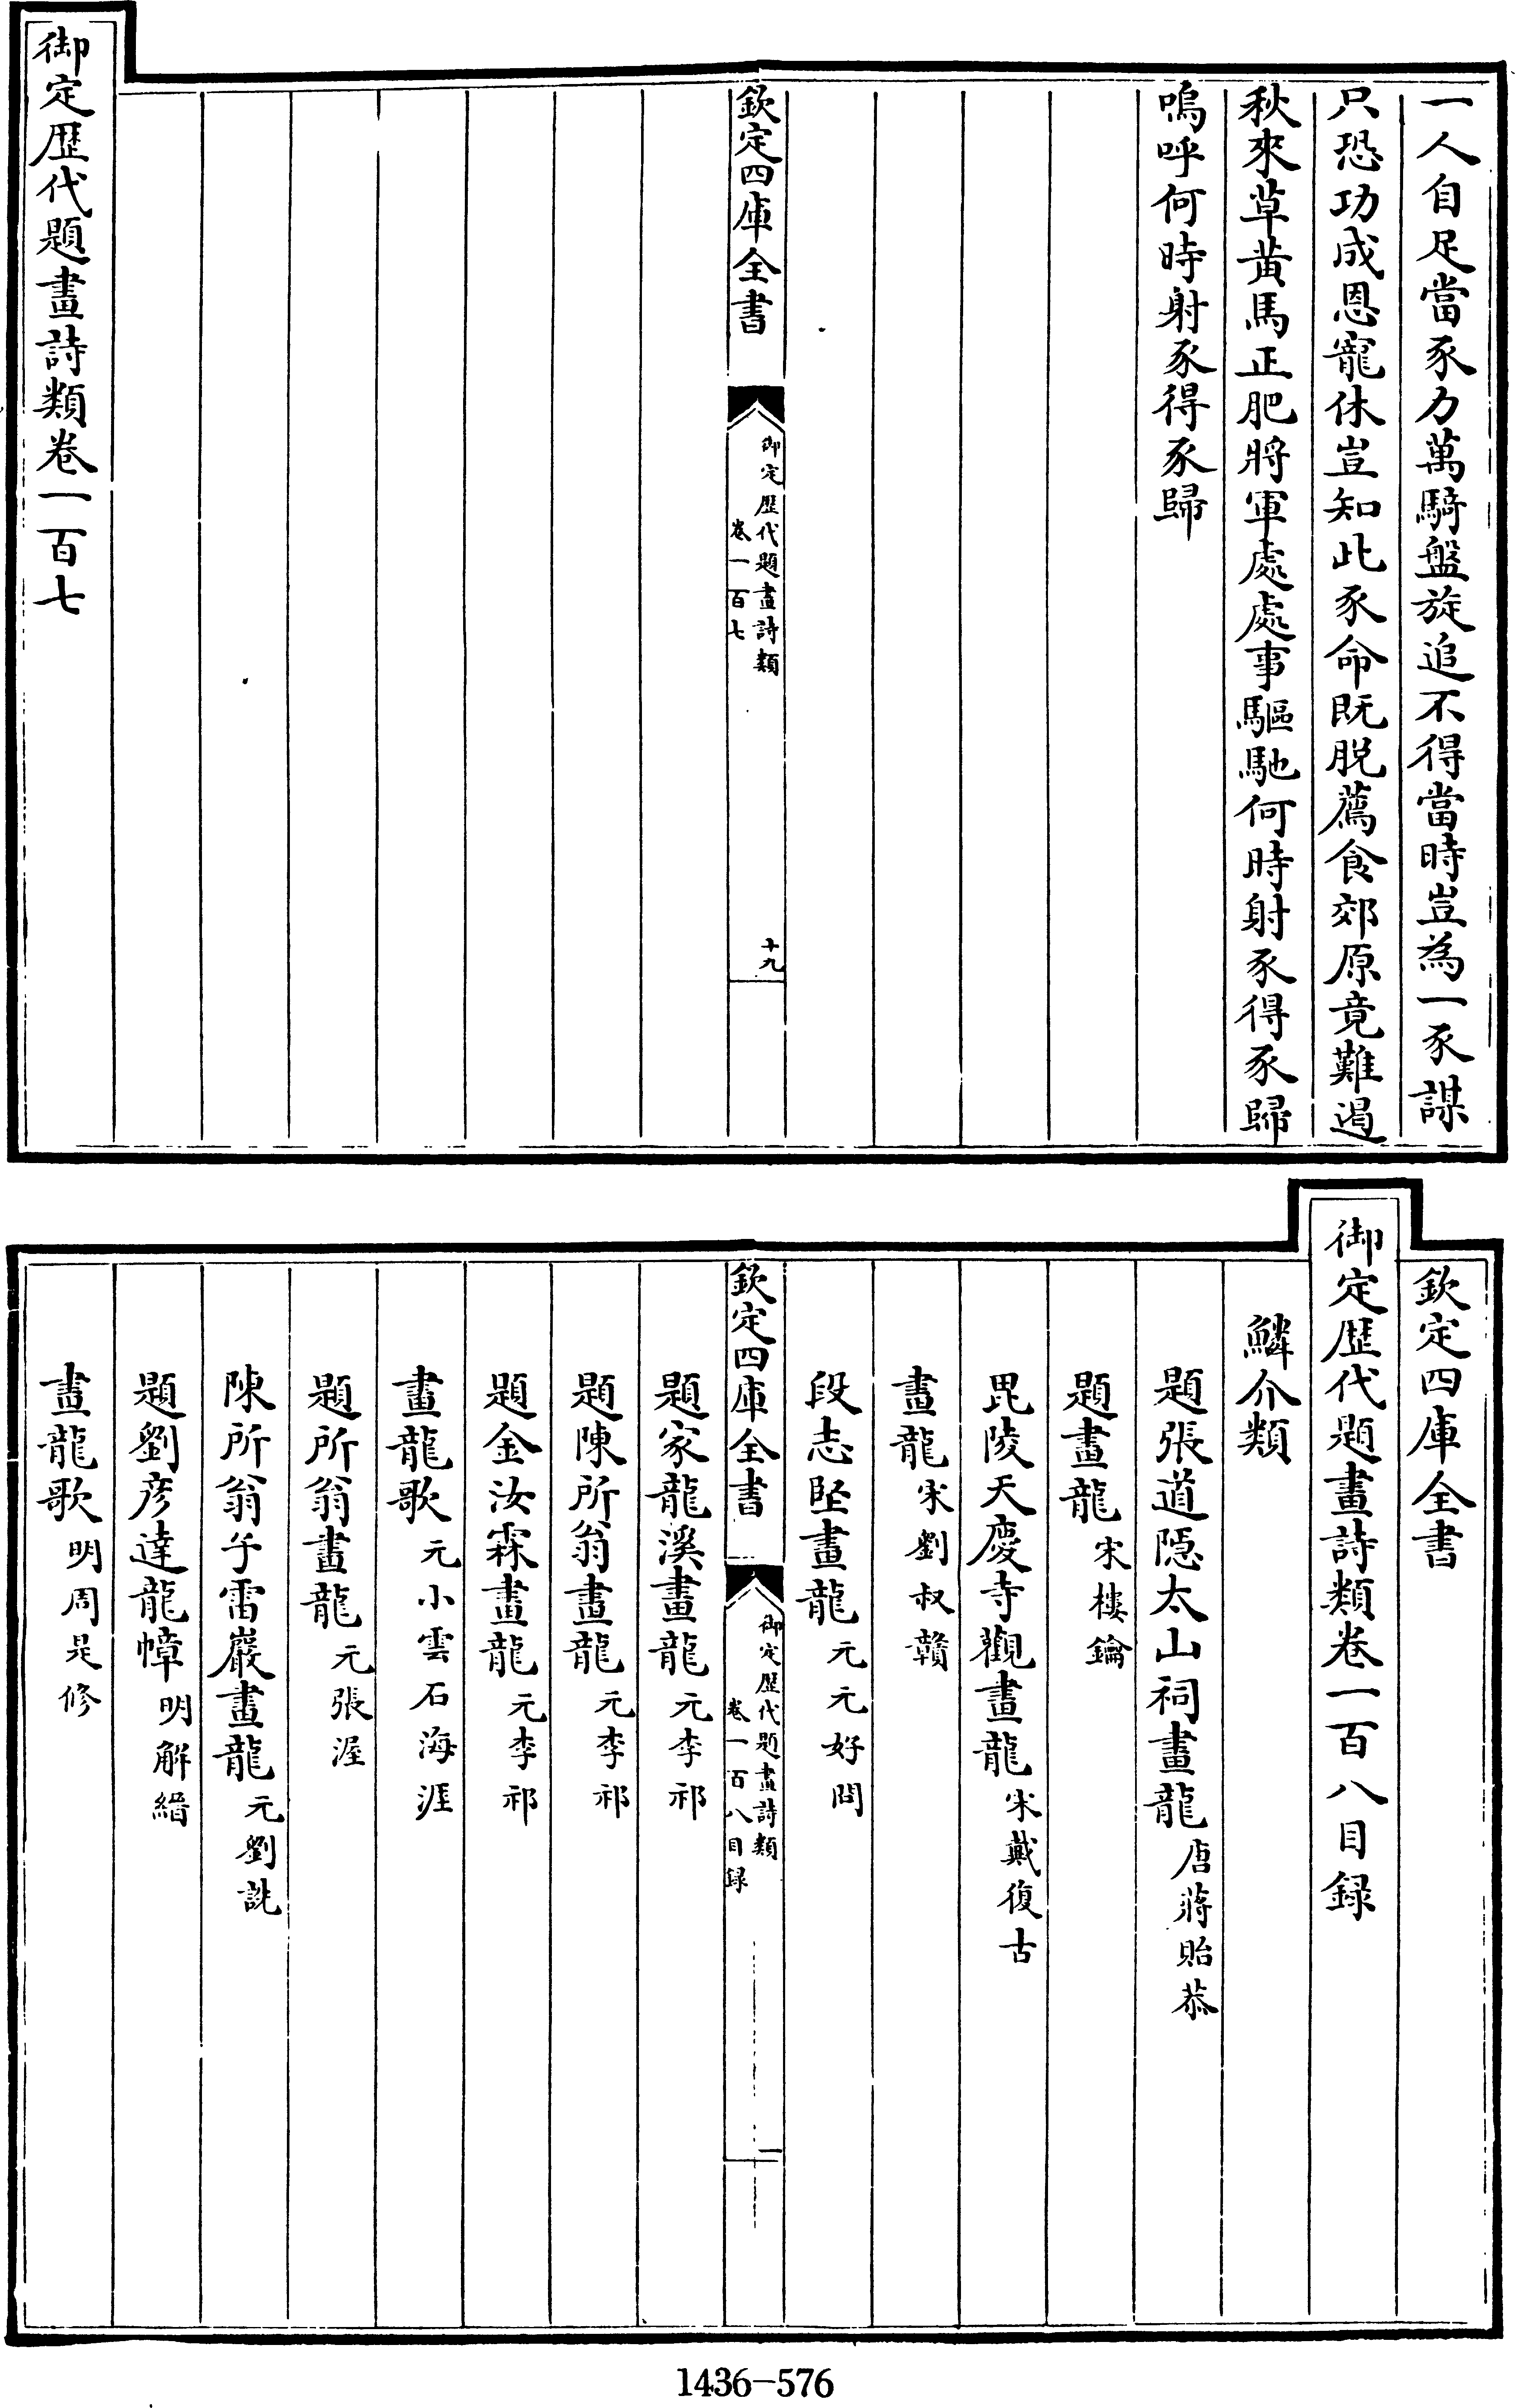 一人自足當豕力萬騎盤旋追不得當時豈為一豕謀
只恐功成恩寵休豈知此豕命既脱薦食郊原竟難遏
秋來草黄馬正肥將軍處處事驅馳何時射豕得豕歸
嗚呼何時射豕得豕歸
欽定四庫全書
御定歴代題畫詩類
卷一百七
十九
御定歴代題畫詩類卷一百七
欽定四庫全書
御定歴代題畫詩類卷一百八目録
鱗介類
題張道隱太山祠畫龍 唐蔣貽恭
題畫龍 宋樓鑰
毘陵天慶寺觀畫龍 宋戴復古
畫龍 宋劉叔贛
段志堅畫龍 元元好問
欽定四庫全書
御定歴代題畫詩類
卷一百八目録
一
題家龍溪畫龍 元李祁
題陳所翁畫龍 元李祁
題金汝霖畫龍 元李祁
畫龍歌 元小雲石海涯
題所翁畫龍 元張渥
陳所翁子雷巖畫龍 元劉詵
題劉彦達龍幛 明解縉
畫龍歌 明周是修
1436-576